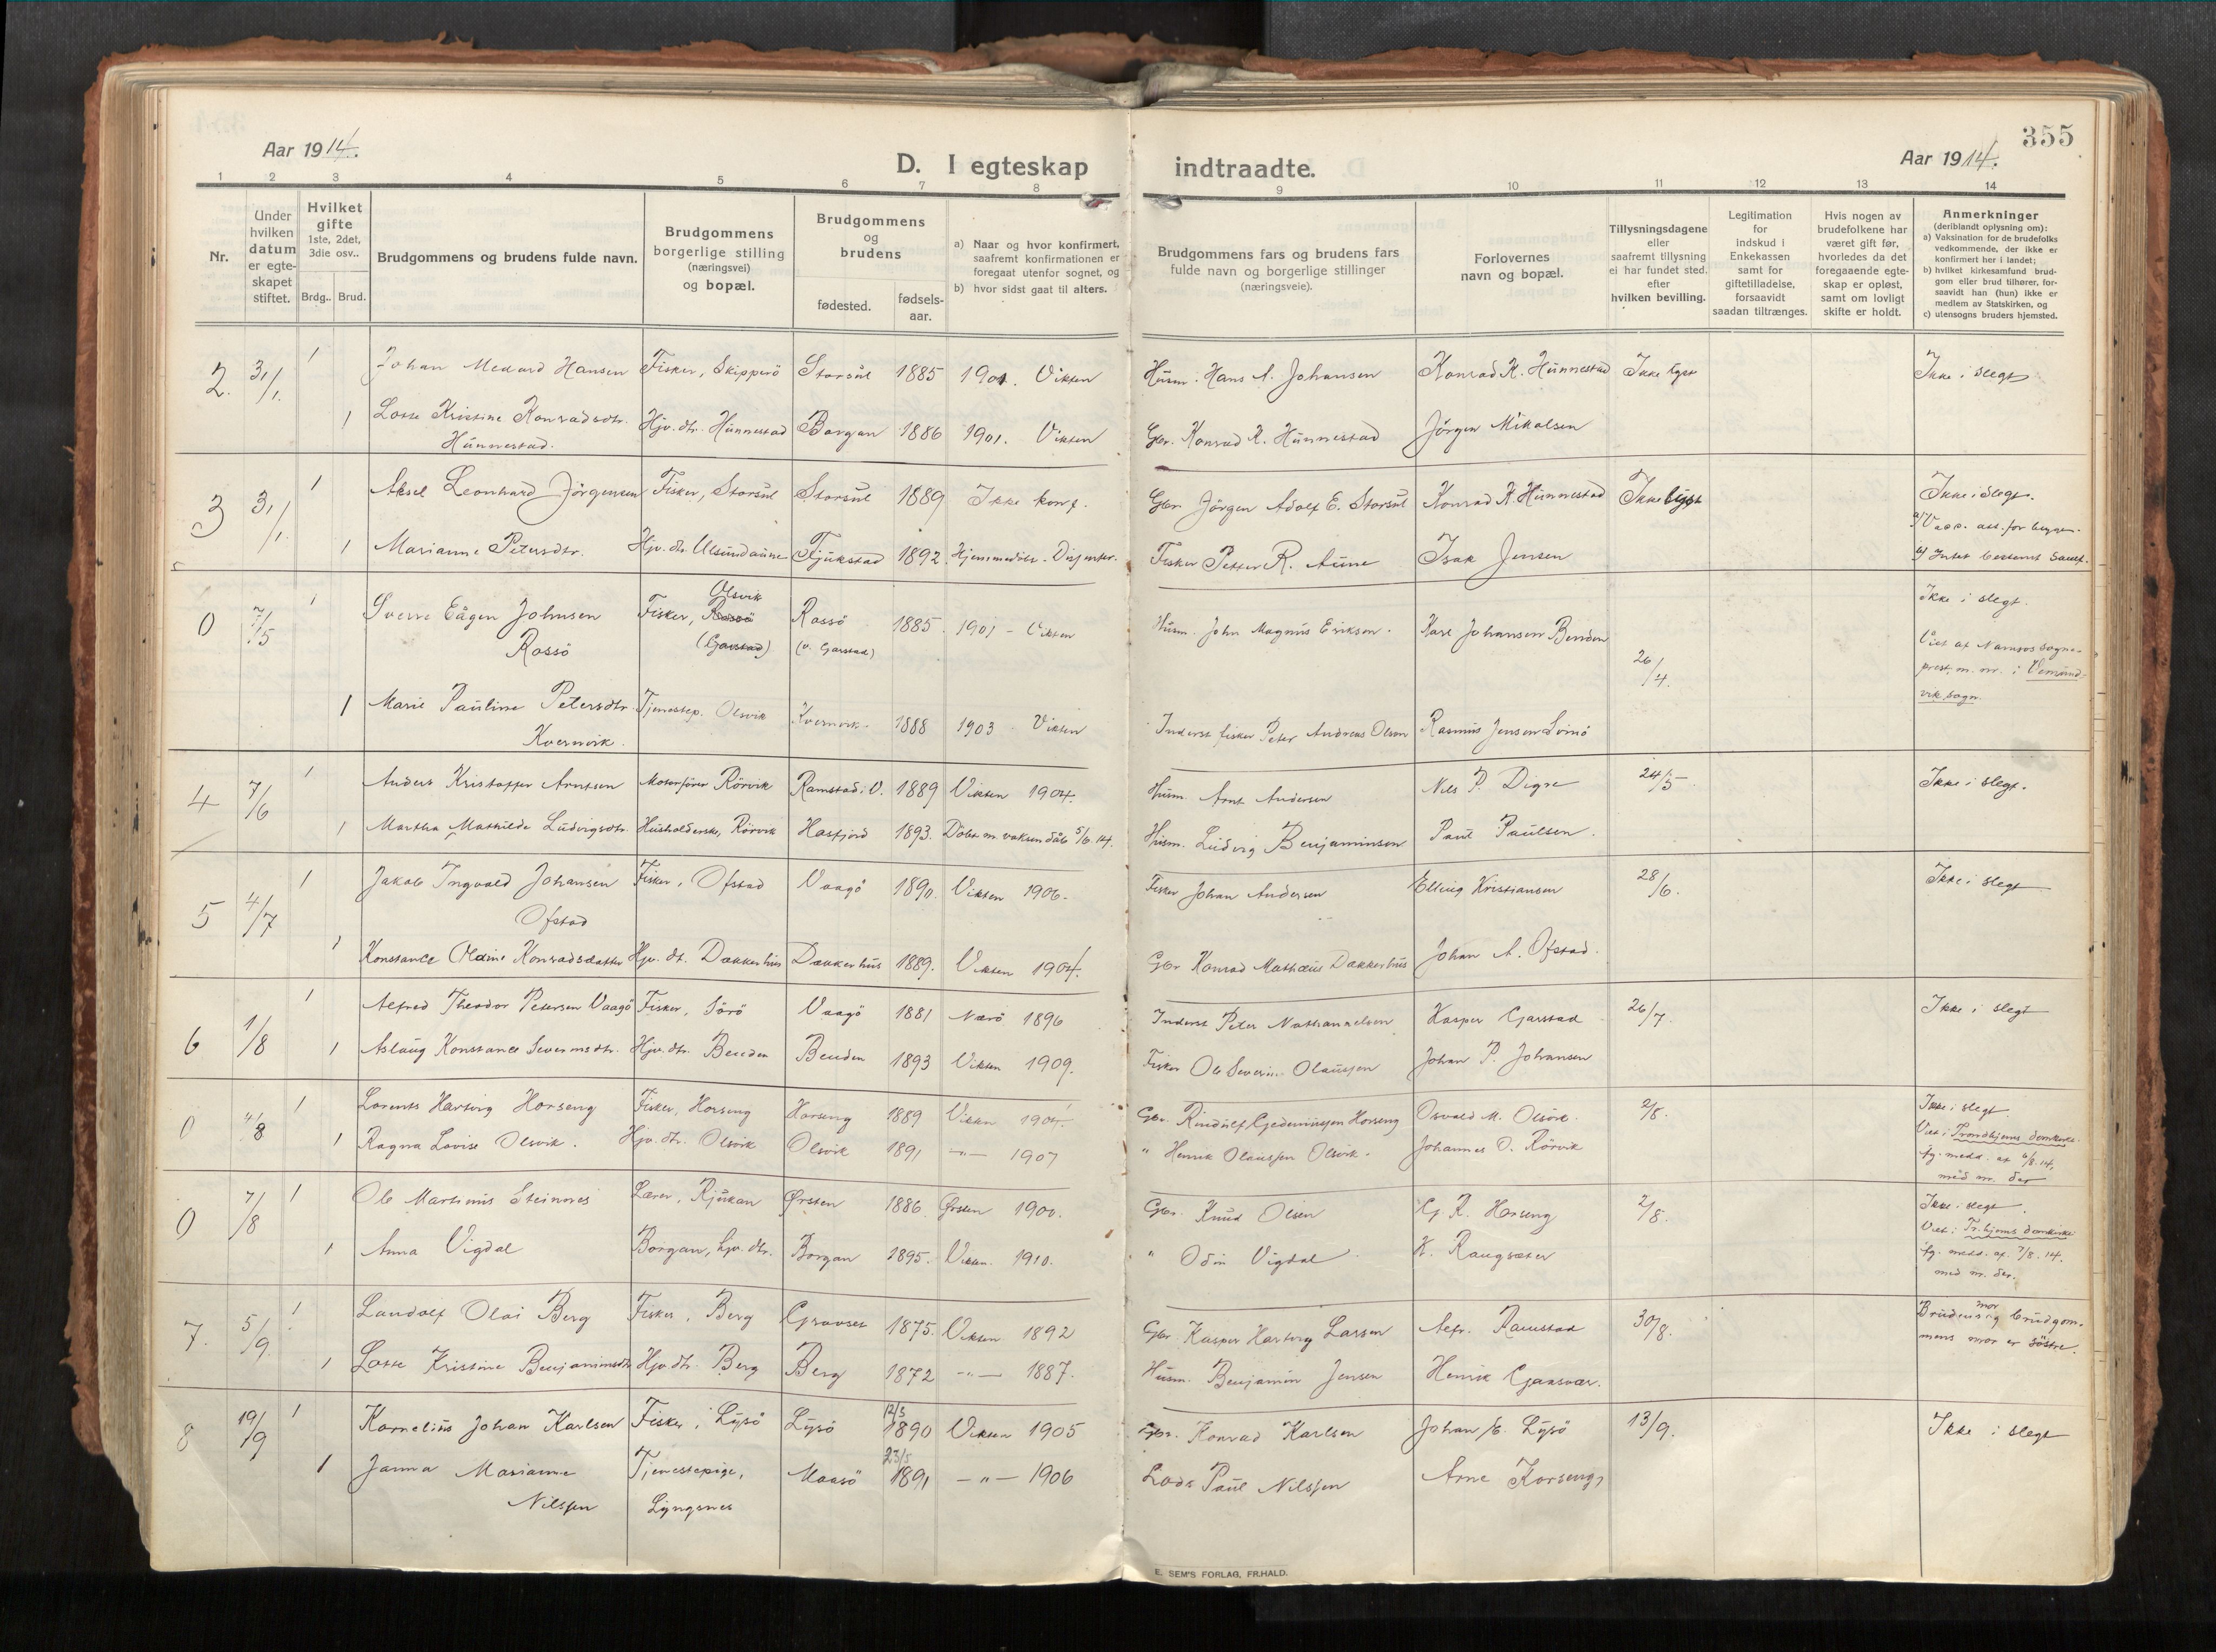 355
Aar 1914.
Aar 1914.
D. I egteskap indtraadte.
1 2 3 4 5 6 7 8 9 10 11 12 13 14
Nr.
Under hvilken datum er egteskapet stiftet.
Hvilket gifte 1ste, 2det, 3die osv..
Brdg.. Brud.
Brudgommens og brudens fulde navn.
Brudgommens borgerlige stilling (næringsvei) og bopæl.
Brudgommens og brudens
fødested.
fødsels-aar.
a) Naar og hvor konfirmert, saafremt konfirmationen er foregaat utenfor sognet, og
b) hvor sidst gaat til alters.
Brudgommens fars og brudens fars fulde navn og borgerlige stillinger (næringsveie).
Forlovernes navn og bopæl.
Tillysningsdagene eller saafremt tillysning ei har fundet sted. efter hvilken bevilling.
Legitimation for indskud i Enkekassen samt for giftetilladelse, forsaavidt saadan tiltrænges.
Hvis nogen av brudefolkene har været gift før, hvorledes da det foregaaende egteskap er opløst, samt om lovligt skifte er holdt.
Anmerkninger (deriblandt oplysning om):
a) Vaksination for de brudefolks vedkommende, der ikke er konfirmert her i landet;
b) hvilket kirkesamfund brudgom eller brud tilhører, forsaavidt han (hun) ikke er medlem av Statskirken, og
c) utensogns bruders hjemsted.
2. 31/1. 1 Johan Medard Hansen Fisker, Skipperö Storsül 1885 1901. Vikten Husm. Hans A. Johansen Konrad K. Hünnestad Ikke lyst Ikke i slegt
1 Lotte Kristine Konradsdtr. Hjv. dtr. Hünnestad Borgan 1886 1901. Vikten Gbr. Konrad K. Hünnestad Jörgen Mikalsen
Hünnestad.
3 31/1. 1 Aksel Leonhard Jörgensen Fisker, Storsül Storsül 1889 Ikke konf. Gbr. Jörgen Adolf E. Storsül Konrad K. Hünnestad Ikke lyst Ikke i slegt.
a/ Vacc. att. for begge.
1 Marianne Petersdtr. Hjv. dtr. Ulsundaune 1892 Hjemmedöbt. Fisker Petter R. Aune Isak Jensen b/ Intet bestemt Samf.
0 7/5 1 Sverre Eågen Johnsen Fisker, Rossö Olsvik Rossö 1885. 1901 - Vikten Husm. John Magnüs Erikson. Karl Johansen Benden 26/4. Ikke i slegt.
Rossö (Garstad) (v. Garstad)
Viet af Namsos sogneprest, m. nr. i Vemundvik sogn.
1 Marie Pauline Petersdtr. Tjenestep. Olsvik Kvernvik 1888 1903 Vikten Inderst fisker Peter Andreas Olsen Rasmus Jensen
Kvernvik.
4 7/6 1 Anders Kristoffer Arntsen Motorförer Rörvik Ramstad i V. 1889 Vikten 1904. Husm. Arnt Andersen Nils P. Digre 24/5 Ikke i slegt.
1 Martha Mathilde Ludvigsdtr. Husholderske, Rörvik Hasfjord 1893. Döbt m. voksen dåb 5/6 14. Husm. Ludvig Benjaminsen Paul Paulsen.
5 4/7 1 Jakob Ingvald Johansen Fisker, Ofstad Vaagö 1890. Vikten 1906. Fisker Johan Andersen Elling Kristiansen 28/6. Ikke i slegt
Ofstad
1 Konstance Oldine Konradsdatter Hjv. dt. Dækkerhus Dækkerhus 1889. Vikten 1904. Gbr Konrad Mathæus Dækkerhus Johan A. Ofstad.
6 1/8 1 Alfred Theodor Petersen Vaagö Fisker, Sörö Vaagö 1881 Nærö 1896 Inderst Peter Nathanaelsen Kasper Garstad 26/7. Ikke i slegt
1 Aslaug Konstance Severinsdtr. Hjv. dtr. Benden Benden 1893 Vikten 1909. Fisker Ole Severin Olaussen Johan P. Johansen
0 4/8 1 Lorents Hartvig Horseng Fisker, Horseng Horseng 1889 Vikten 1904. Gbr. Rindulf Gedeminssen Horseng Osvald M. Olsvik. 2/8. Ikke i slegt.
Viet i Trondhjems domkirke.
1 Ragna Lovise Olsvik. Hjv. dtr. Olsvik Olsvik 1891 -"- 1907 " Henrik Olaussen Olsvik. Johannes O. Rörvik fg. medd. af 6/8.14, med nr. der
0 7/8 1 Ole Martinus Steinnes Lærer, Rjukan Ørsten 1886. Ørsten 1900. Gbr. Knud Olsen G. R. Horseng 2/8. Ikke i slegt.
Viet i Tr.hjems domkirke
1 Anna Vigdal Borgan, hjv. dtr. Borgan 1895. Vikten. 1910. " Odin Vigdal K. Raugsæter fg. medd. af 7/8. 14. med nr. der.
7. 5/9 1 Landolf Olai Berg Fisker, Berg Gravset 1875. Vikten 1892 Gbr. Kasper Hartvig Larsen Alfr. Ramstad 30/8. Brudens mor og brudgommens mor er söstre.
1 Lotte Kristine Benjaminsdtr Hjv. dtr. Berg Berg 1872 -"- 1887. Husm. Benjamin Jensen Henrik Gjæsvær.
8 19/9 1 Kornelius Johan Karlsen Fisker, Lysö Lysö 12/3 1890 Vikten 1905 Gbr. Konrad Karlsen Johan E. Lysö 13/9. Ikke i slegt
1 Janna Marianne Tjenestepige, Maasö 23/5 1891 -"- 1906 Lods Paul Nilssen Arne Horseng
Nilssen Lyngsnes
E. SEM'S FORLAG, FR.HALD.